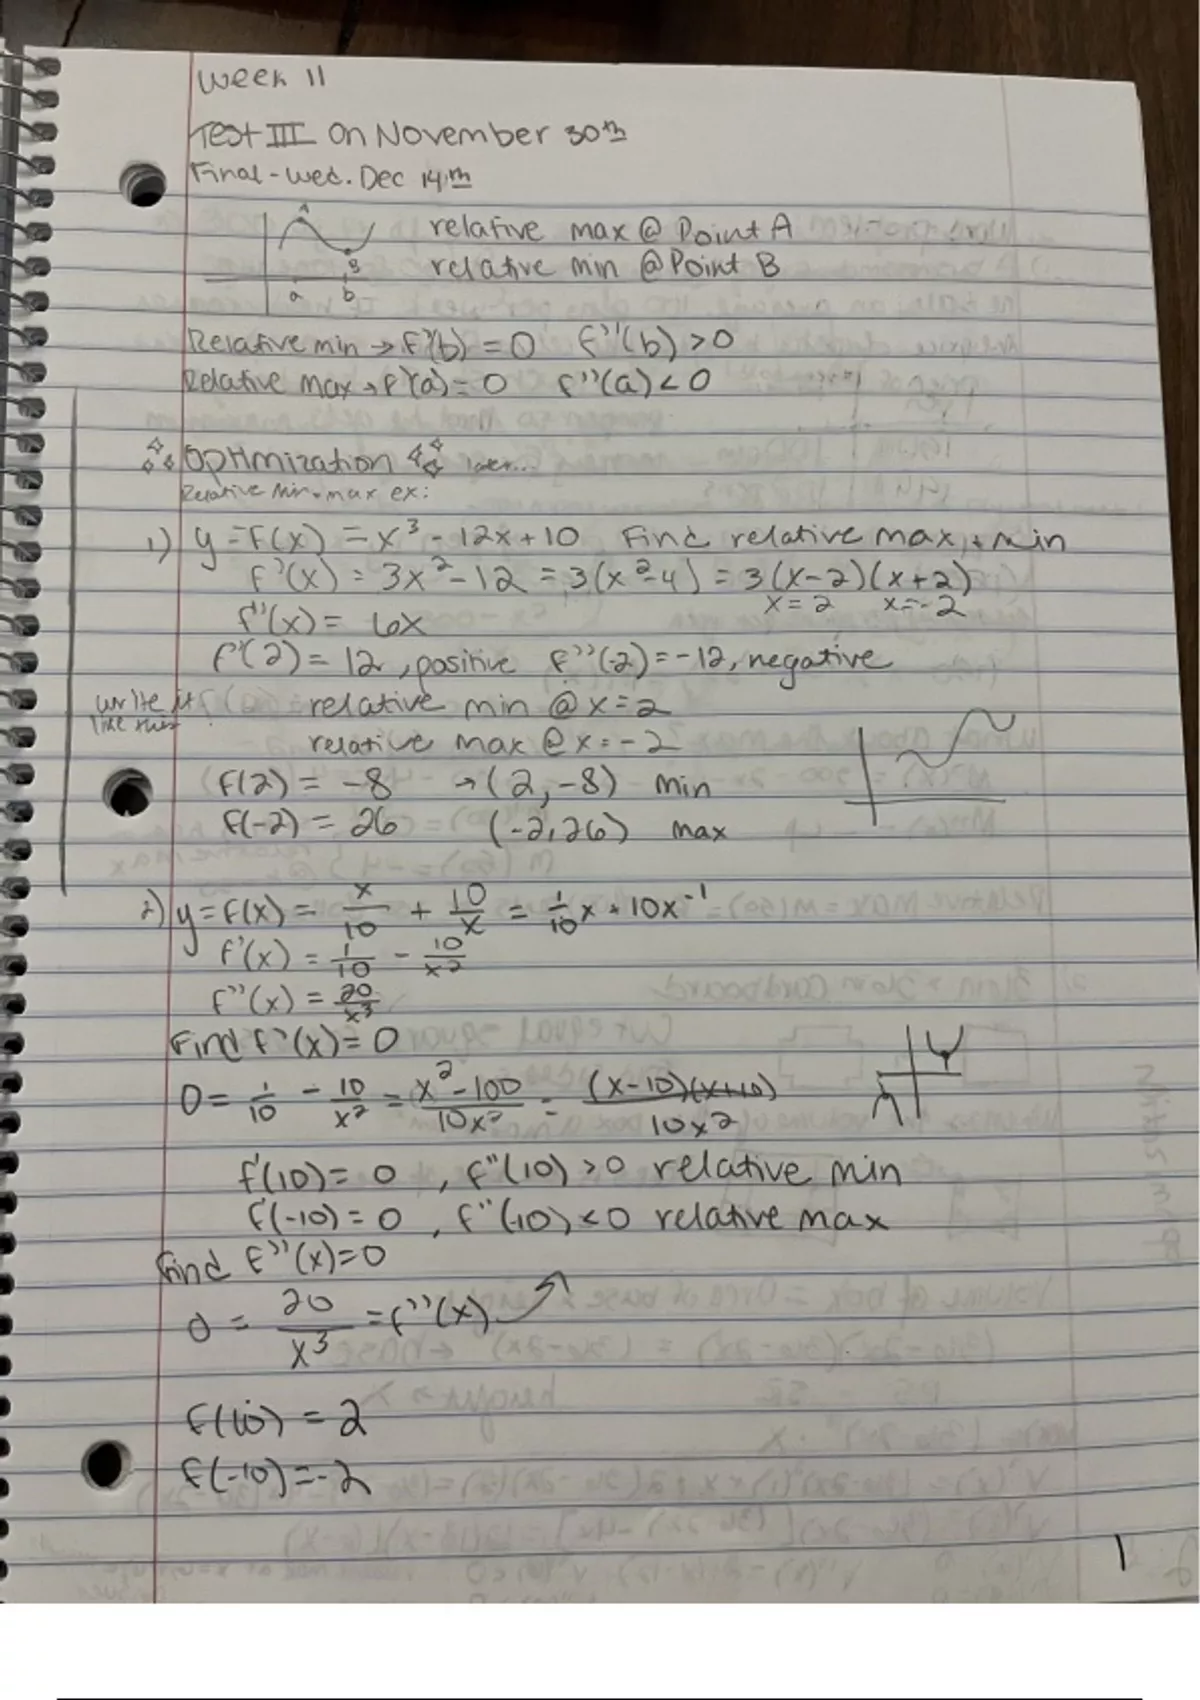 Week 11
Test III On November 30th
Final - Wed. Dec 14th
A
relative max @ Point A
B
relative min @ Point B
a b
Relative min → f'(b) = 0 f''(b) > 0
Relative max → f'(a) = 0 f''(a) < 0
Optimization later...
Relative Min + max ex:
1) y = f(x) = x³ - 12x + 10 Find relative max + min
f'(x) = 3x² - 12 = 3(x² - 4) = 3(x-2)(x+2)
x = 2 x = -2
f''(x) = 6x
f''(2) = 12, positive f''(-2) = -12, negative
write it like this
relative min @ x = 2
relative max @ x = -2
f(2) = -8 → (2, -8) min
f(-2) = 26 (-2, 26) max
2) y = f(x) = x/10 + 10/x = 1/10 x + 10x⁻¹
f'(x) = 1/10 - 10/x²
f''(x) = 20/x³
Find f'(x) = 0
0 = 1/10 - 10/x² = x² - 100/10x² = (x-10)(x+10)/10x²
f'(10) = 0, f''(10) > 0 relative min
f'(-10) = 0, f''(-10) < 0 relative max
Find f''(x) = 0
0 = 20/x³ = f''(x)
f(10) = 2
f(-10) = -2
1